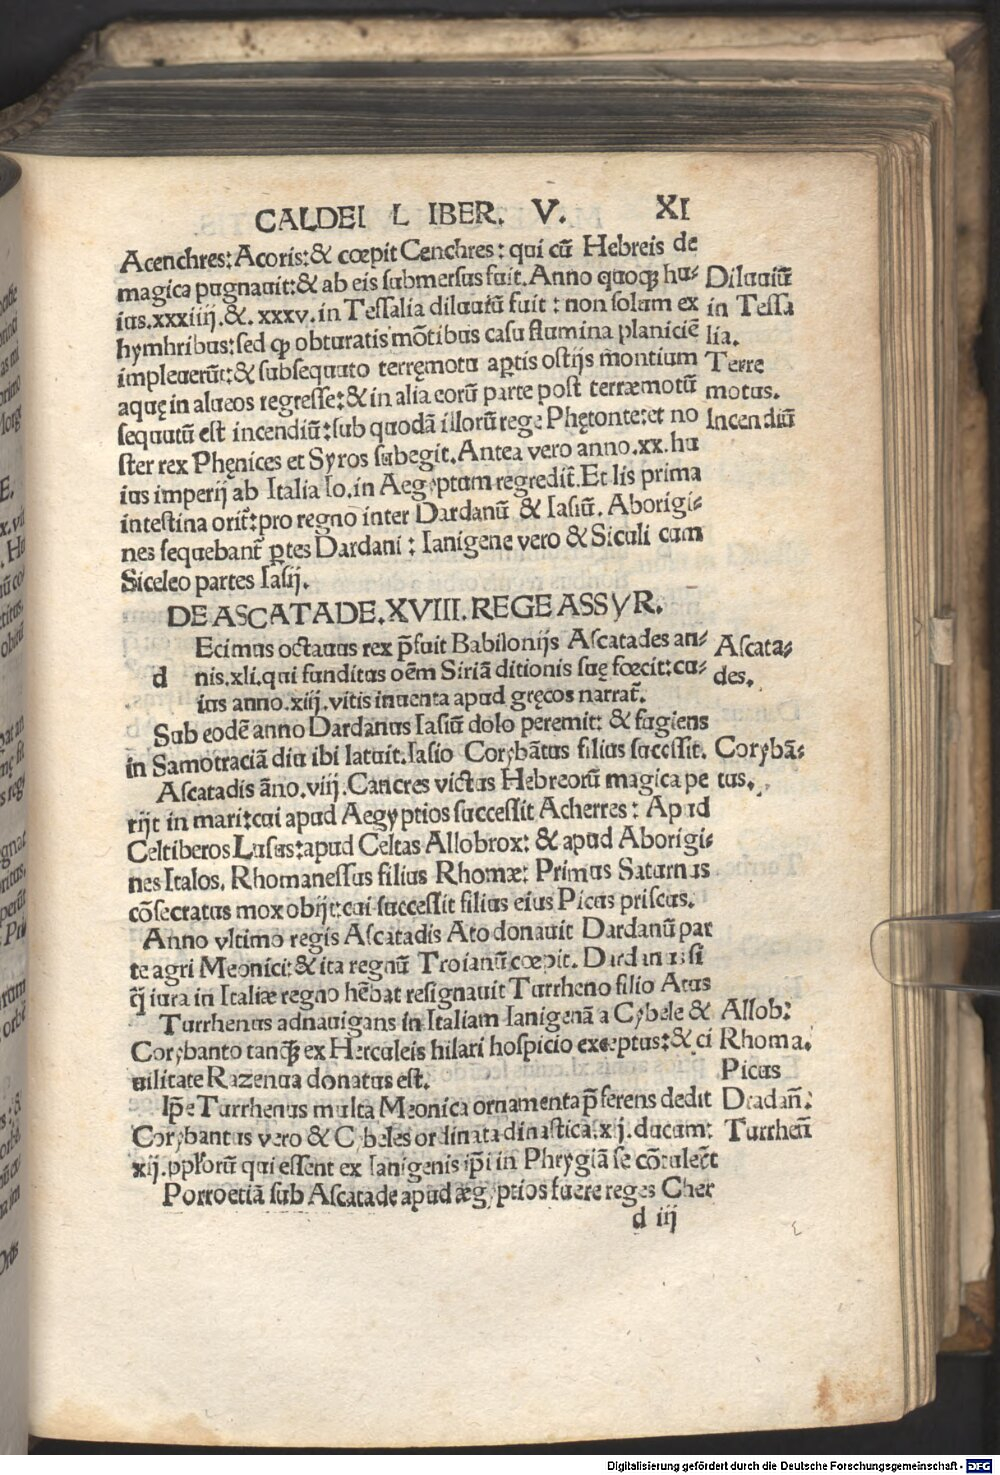 CALDEI L IBER. V. XI
Acenchres: Acoris: & cœpit Cenchres: qui cū Hebreis de
magica pugnauit: & ab eis submersus fuit. Anno quoqȝ hu- Diluuiū
ius.xxxiiij.&. xxxv. in Tessalia diluuiū fuit: non solum ex in Tessa
hymbribus: sed qp obturatis mōtibus casu flumina planiciē lia.
impleuerūt: & subsequuto terręmotu aptis ostijs montium Terre
aquę in alueos regresse: & in alia eorū parte post terræmotū motus.
sequutū est incendiū: sub quodā illorū rege Phętonte: et no Incendiū
ster rex Phęnices et Syros subegit. Antea vero anno.xx.hu
ius imperij ab Italia Io. in Aegyptum regredit̄. Et lis prima
intestina orit̄: pro regno inter Dardanū & Iasiū. Aborigi-
nes sequebant̄ ꝑtes Dardani: Ianigene vero & Siculi cum
Siceleo partes Iasij.
DE ASCATADE. XVIII. REGE ASSYR.
Ecimus octauus rex p̄fuit Babilonijs Ascatades an- Ascata-
d nis.xli. qui funditus oēm Siriā ditionis suę fœcit: cu- des.
ius anno.xiij. vitis inuenta apud gręcos narrat̄.
Sub eodē anno Dardanus Iasiū dolo peremit: & fugiens
in Samotraciā diu ibi latuit. Iasio Corybātus filius successit. Corybā-
Ascatadis āno.viij. Cancres victus Hebreorū magica pe tus.
rijt in mari: cui apud Aegyptios successit Acherres: Apud
Celtiberos Lusus: apud Celtas Allobrox: & apud Aborigi-
nes Italos, Rhomanessus filius Rhomæ: Primus Saturnus
cōsecratus mox obijt: cui successit filius eius Picus priscus.
Anno vltimo regis Ascatadis Ato donauit Dardanū par
te agri Meonici: & ita regnū Troianū cœpit. Dardanus si
qj iura in Italiæ regno hēbat resignauit Turrheno filio Atus
Turrhenus adnauigans in Italiam Ianigenā a Cybele & Allob:
Corybanto tanqȝ ex Herculeis hilari hospicio exceptus: & ci Rhoma.
uilitate Razenua donatus est. Picus
Ip̄e Turrhenus multa Meonica ornamenta p̄ferens dedit Dradan̄:
Corybantus vero & Cybeles ordinata dinastica.xij.ducum: Turrhen̄
xij.pplorū qui essent ex Ianigenis ip̄i in Phrygiā se cōtuler̄t
Porro etiā sub Ascatade apud ægyptios fuere reges Cher
d iij
Digitalisierung gefördert durch die Deutsche Forschungsgemeinschaft - DFG